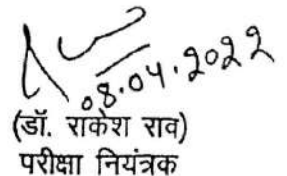 08.04.2022
(डॉ. राकेश राव)
परीक्षा नियंत्रक